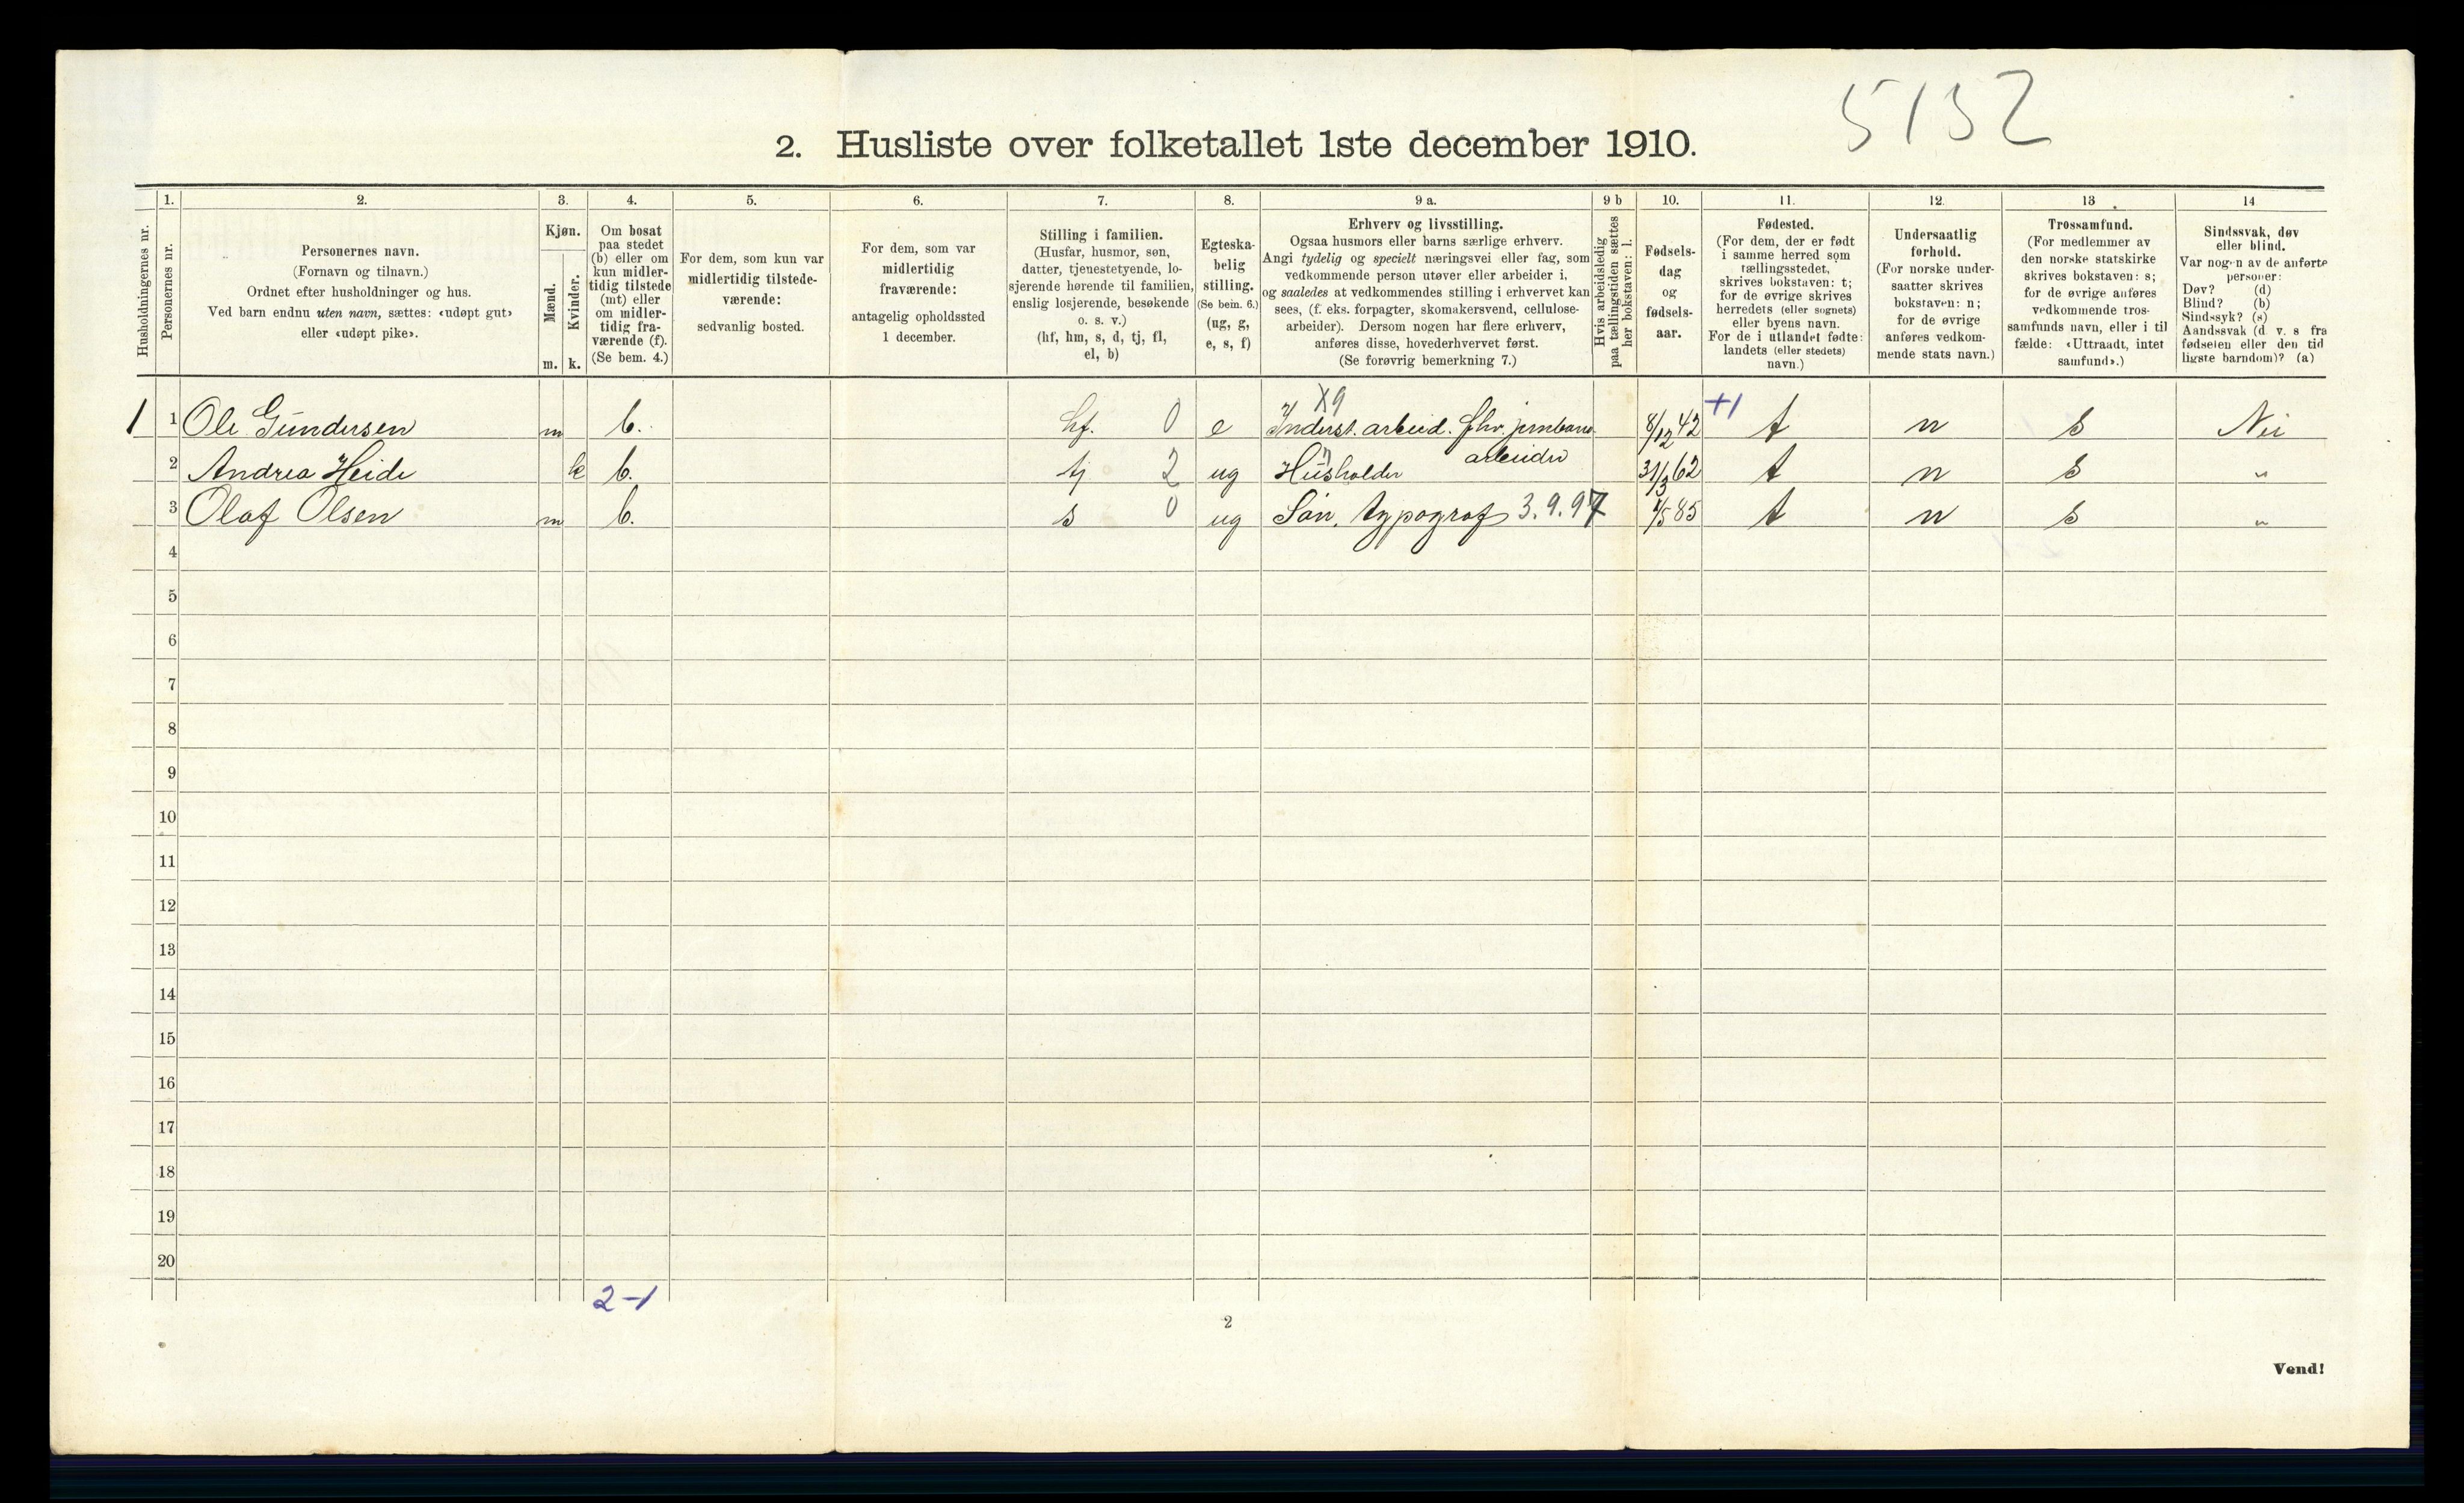 5132
2. Husliste over folketallet 1ste december 1910.
Husholdningernes nr.
1.
Personernes nr.
2.
Personernes navn.
(Fornavn og tilnavn.)
Ordnet efter husholdninger og hus.
Ved barn endnu uten navn, sættes: «udøpt gut»
eller «udøpt pike».
3.
Kjøn.
Mænd.
Kvinder.
m. k.
4.
Om bosat
paa stedet
(b) eller om
kun midler-
tidig tilstede
(mt) eller
om midler-
tidig fra-
værende (f).
(Se bem. 4.)
5.
For dem, som kun var
midlertidig tilstede-
værende:
sedvanlig bosted.
6.
For dem, som var
midlertidig
fraværende:
antagelig opholdssted
1 december.
7.
Stilling i familien.
(Husfar, husmor, søn,
datter, tjenestetyende, lo-
sjerende hørende til familien,
enslig losjerende, besøkende
o. s. v.)
(hf, hm, s, d, tj, fl,
el, b)
8.
Egteska-
belig
stilling.
(Se bem. 6.)
(ug, g,
e, s, f)
9 a.
Erhverv og livsstilling.
Ogsaa husmors eller barns særlige erhverv.
Angi tydelig og specielt næringsvei eller fag, som
vedkommende person utøver eller arbeider i,
og saaledes at vedkommendes stilling i erhvervet kan
sees, (f. eks. forpagter, skomakersvend, cellulose-
arbeider). Dersom nogen har flere erhverv,
anføres disse, hovederhvervet først.
(Se forøvrig bemerkning 7.)
9 b
Hvis arbeidsledig
paa tællingstiden sættes
her bokstaven: l.
10.
Fødsels-
dag
og
fødsels-
aar.
11.
Fødested.
(For dem, der er født
i samme herred som
tællingsstedet,
skrives bokstaven: t;
for de øvrige skrives
herredets (eller sognets)
eller byens navn.
For de i utlandet fødte:
landets (eller stedets)
navn.)
12.
Undersaatlig
forhold.
(For norske under-
saatter skrives
bokstaven: n;
for de øvrige
anføres vedkom-
mende stats navn.)
13
Trossamfund.
(For medlemmer av
den norske statskirke
skrives bokstaven: s;
for de øvrige anføres
vedkommende tros-
samfunds navn, eller i til
fælde: «Uttraadt, intet
samfund».)
14
Sindssvak, døv
eller blind.
Var nogen av de anførte
personer:
Døv? (d)
Blind? (b)
Sindssyk? (s)
Aandssvak (d v. s fra
fødselen eller den tid
ligste barndom)? (a)
X9 +1
1 1 Ole Gundersen m b. hf. 0 e Inderst. arbeid. fhv. jernbane- 8/12 42 t n s Nei
arbeider
2 Andrea Heide k b. tj 2 ug Husholder 31/3 62 t n s "
3 Olaf Olsen m b. s 0 ug Søn, typograf 3.9.97 /5 85 t n s "
4
5
6
7
8
9
10
11
12
13
14
15
16
17
18
19
20
2-1
2
Vend!